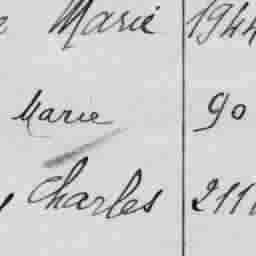 Marie 1944
Marie 90
Charles 211